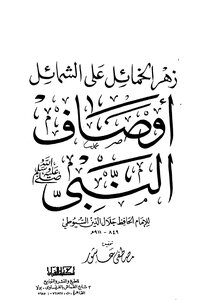 زهر الخمائل على الشمائل
أوصاف
النبى
صلى الله عليه وسلم
للإمام الحافظ جلال الدين السيوطى
٨٤٩ - ٩١١ هـ
تحقيق
مصطفى عاشور